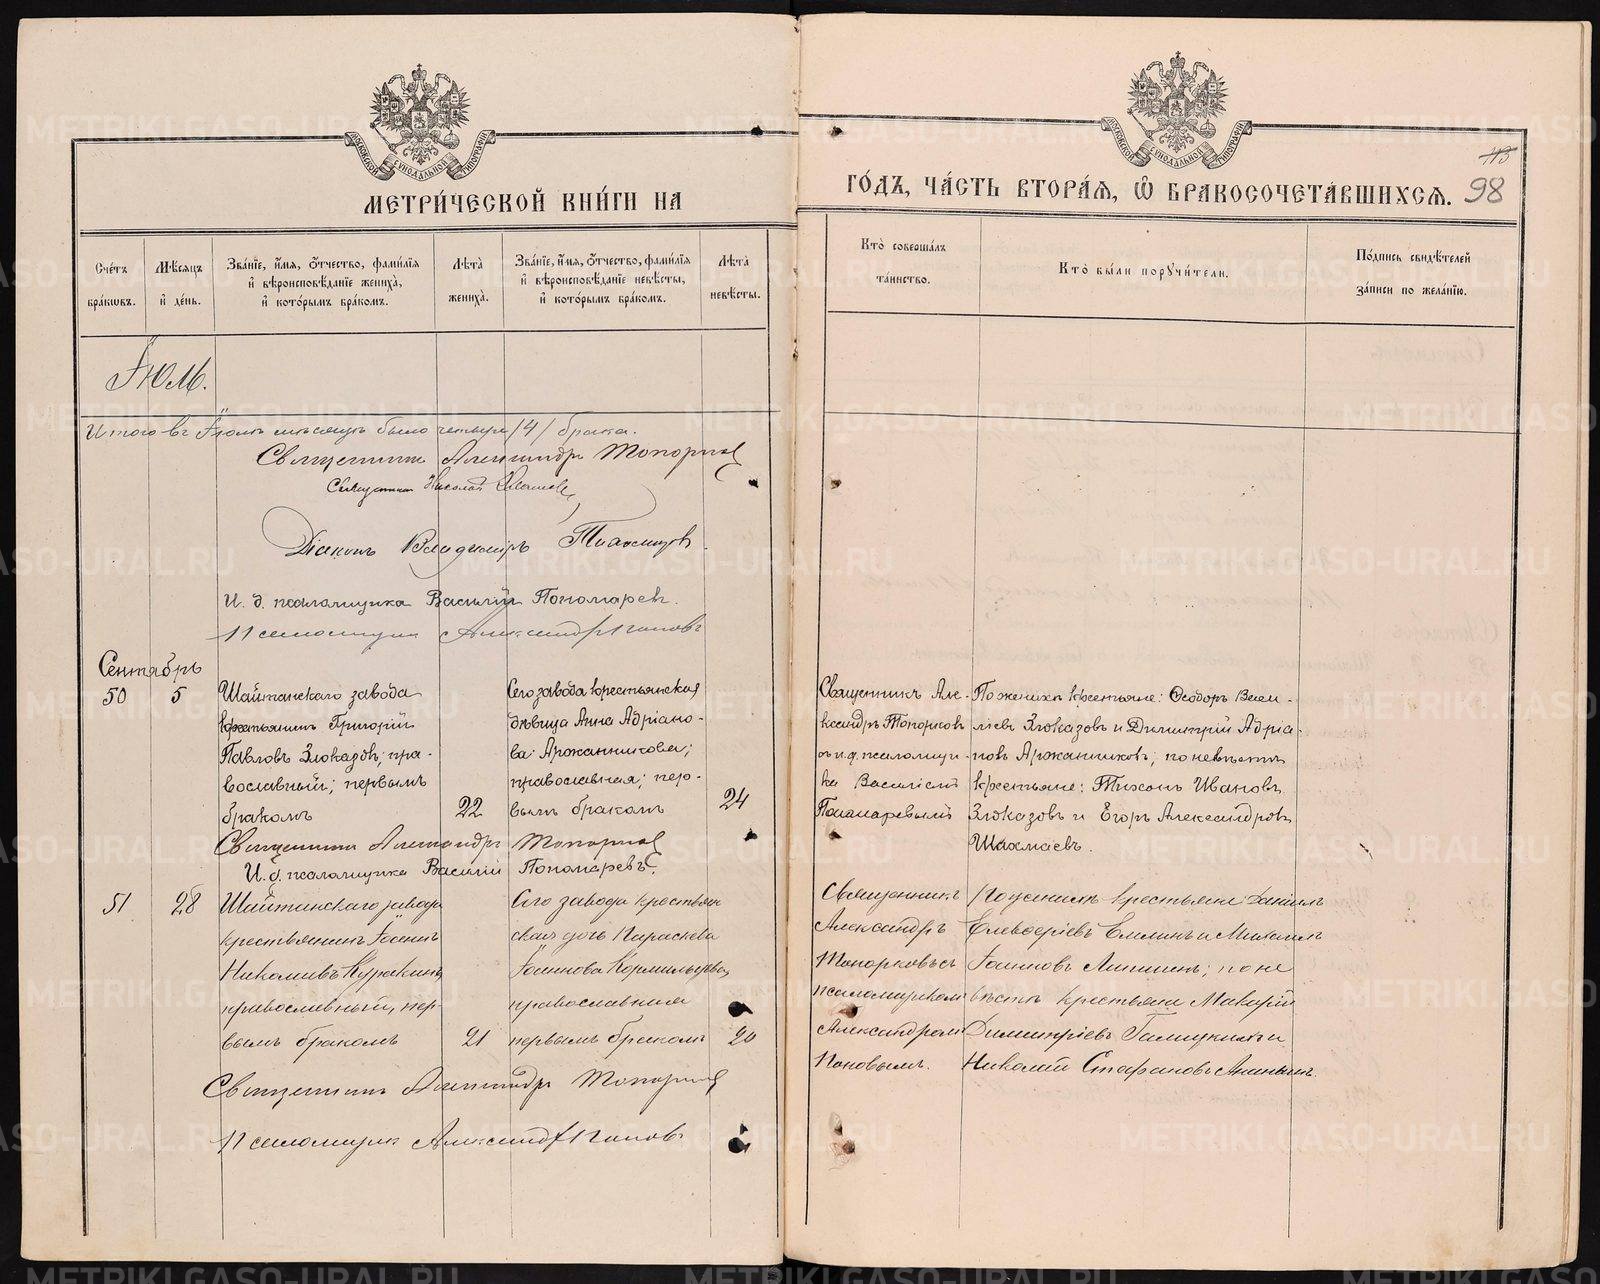 МЕТРИ́ЧЕСКОЙ КНИ́ГИ НА
ГО́ДЪ, ЧА́СТЬ ВТОРА́Ѧ, Ѡ БРАКОСОЧЕТА́ВШИХСѦ.
113
98
Сче́тъ бра́кѡвъ.
Мѣ́сѧцъ и де́нь.
Зва́нїе, и́мѧ, ѻ́тчество, фами́лїѧ и вѣроисповѣ́данїе жениха̀, и кото́рымъ бра́комъ.
Лѣ́та жениха̀.
Зва́нїе, и́мѧ, ѻ́тчество, фами́лїѧ и вѣроисповѣ́данїе невѣ́сты, и кото́рымъ бра́комъ.
Лѣ́та невѣ́сты.
Кто̀ соверша́лъ та́инство.
Кто̀ бы́ли порꙋчи́тели.
По́дпись свидѣ́телей за́писи по жела́нїю.
Іюль.
Итого въ Іюлѣ мѣсяцѣ было четыре /4/ брака.
Священникъ Александръ Топорковъ
Священникъ Николай
Діаконъ Владиміръ
И. д. псаломщика Василій Пономаревъ.
Псаломщикъ Александръ Поповъ
Сентябрь
50 5
Шайтанскаго завода
крестьянинъ Григорій
Павловъ Злоказовъ; пра-
вославный; первымъ
бракомъ
22
Сего завода крестьянская
дѣвица Анна Адріано-
ва Аржанникова;
православная; пер-
вымъ бракомъ
24
Священникъ Але-
ксандръ Топорков
ъ и.д. псаломщи-
ка Василій
Пономаревый
По женихѣ крестьяне: Ѳеодоръ Васи-
ліевъ Злоказовъ и Димитрій Адріа-
новъ Аржанниковъ; по невѣстѣ
крестьяне: Тихонъ Ивановъ
Злоказовъ и Егоръ Александровъ
Шахмаевъ.
Священникъ Александръ Топорковъ
И. д. псаломщика Василій Пономаревъ.
51 28
Шайтанскаго завода
крестьянинъ Іоаннъ
Николаевъ Куракинъ
православный, пер-
вымъ бракомъ
21
Сего завода крестьян
ская дочь Параскева
Іоаннова Кормильцева,
православная
первымъ бракомъ
20
Священникъ
Александръ
Топорковъ съ
псаломщикомъ
Александромъ
Поповымъ.
По женихѣ крестьяне Даніилъ
Елевѳеріевъ Емлинъ и Михаилъ
Іоанновъ Липинъ; по не
вѣстѣ крестьяне Макарій
Димитріевъ Галицкихъ и
Николай Стефановъ Ананьинъ.
Священникъ Александръ Топорковъ
Псаломщикъ Александръ Поповъ
METRIKI.GASO-URAL.RU